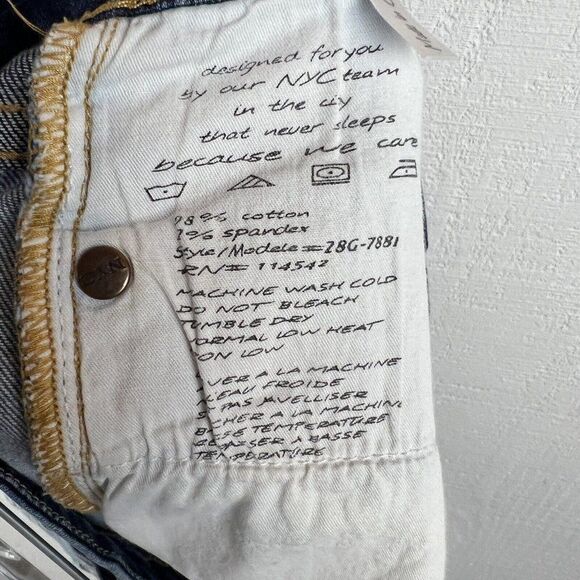 designed for you
by our NYC team
in the city
that never sleeps
because we care
98% cotton
2% spandex
Style/Modele# Z8G-7881
RN# 114542
MACHINE WASH COLD
DO NOT BLEACH
TUMBLE DRY
NORMAL LOW HEAT
ON LOW
VER A LA MACHINE
EAU FROIDE
PAS JAVELLISER
CHER A LA MACHIN
BASE TEMPERATURE
A BASSE
TEMPERATURE